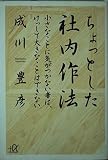 ちょっとした
社内作法
小さなことに気がつかない者は、
けっして大きなことはできない
成川豊彦
+α